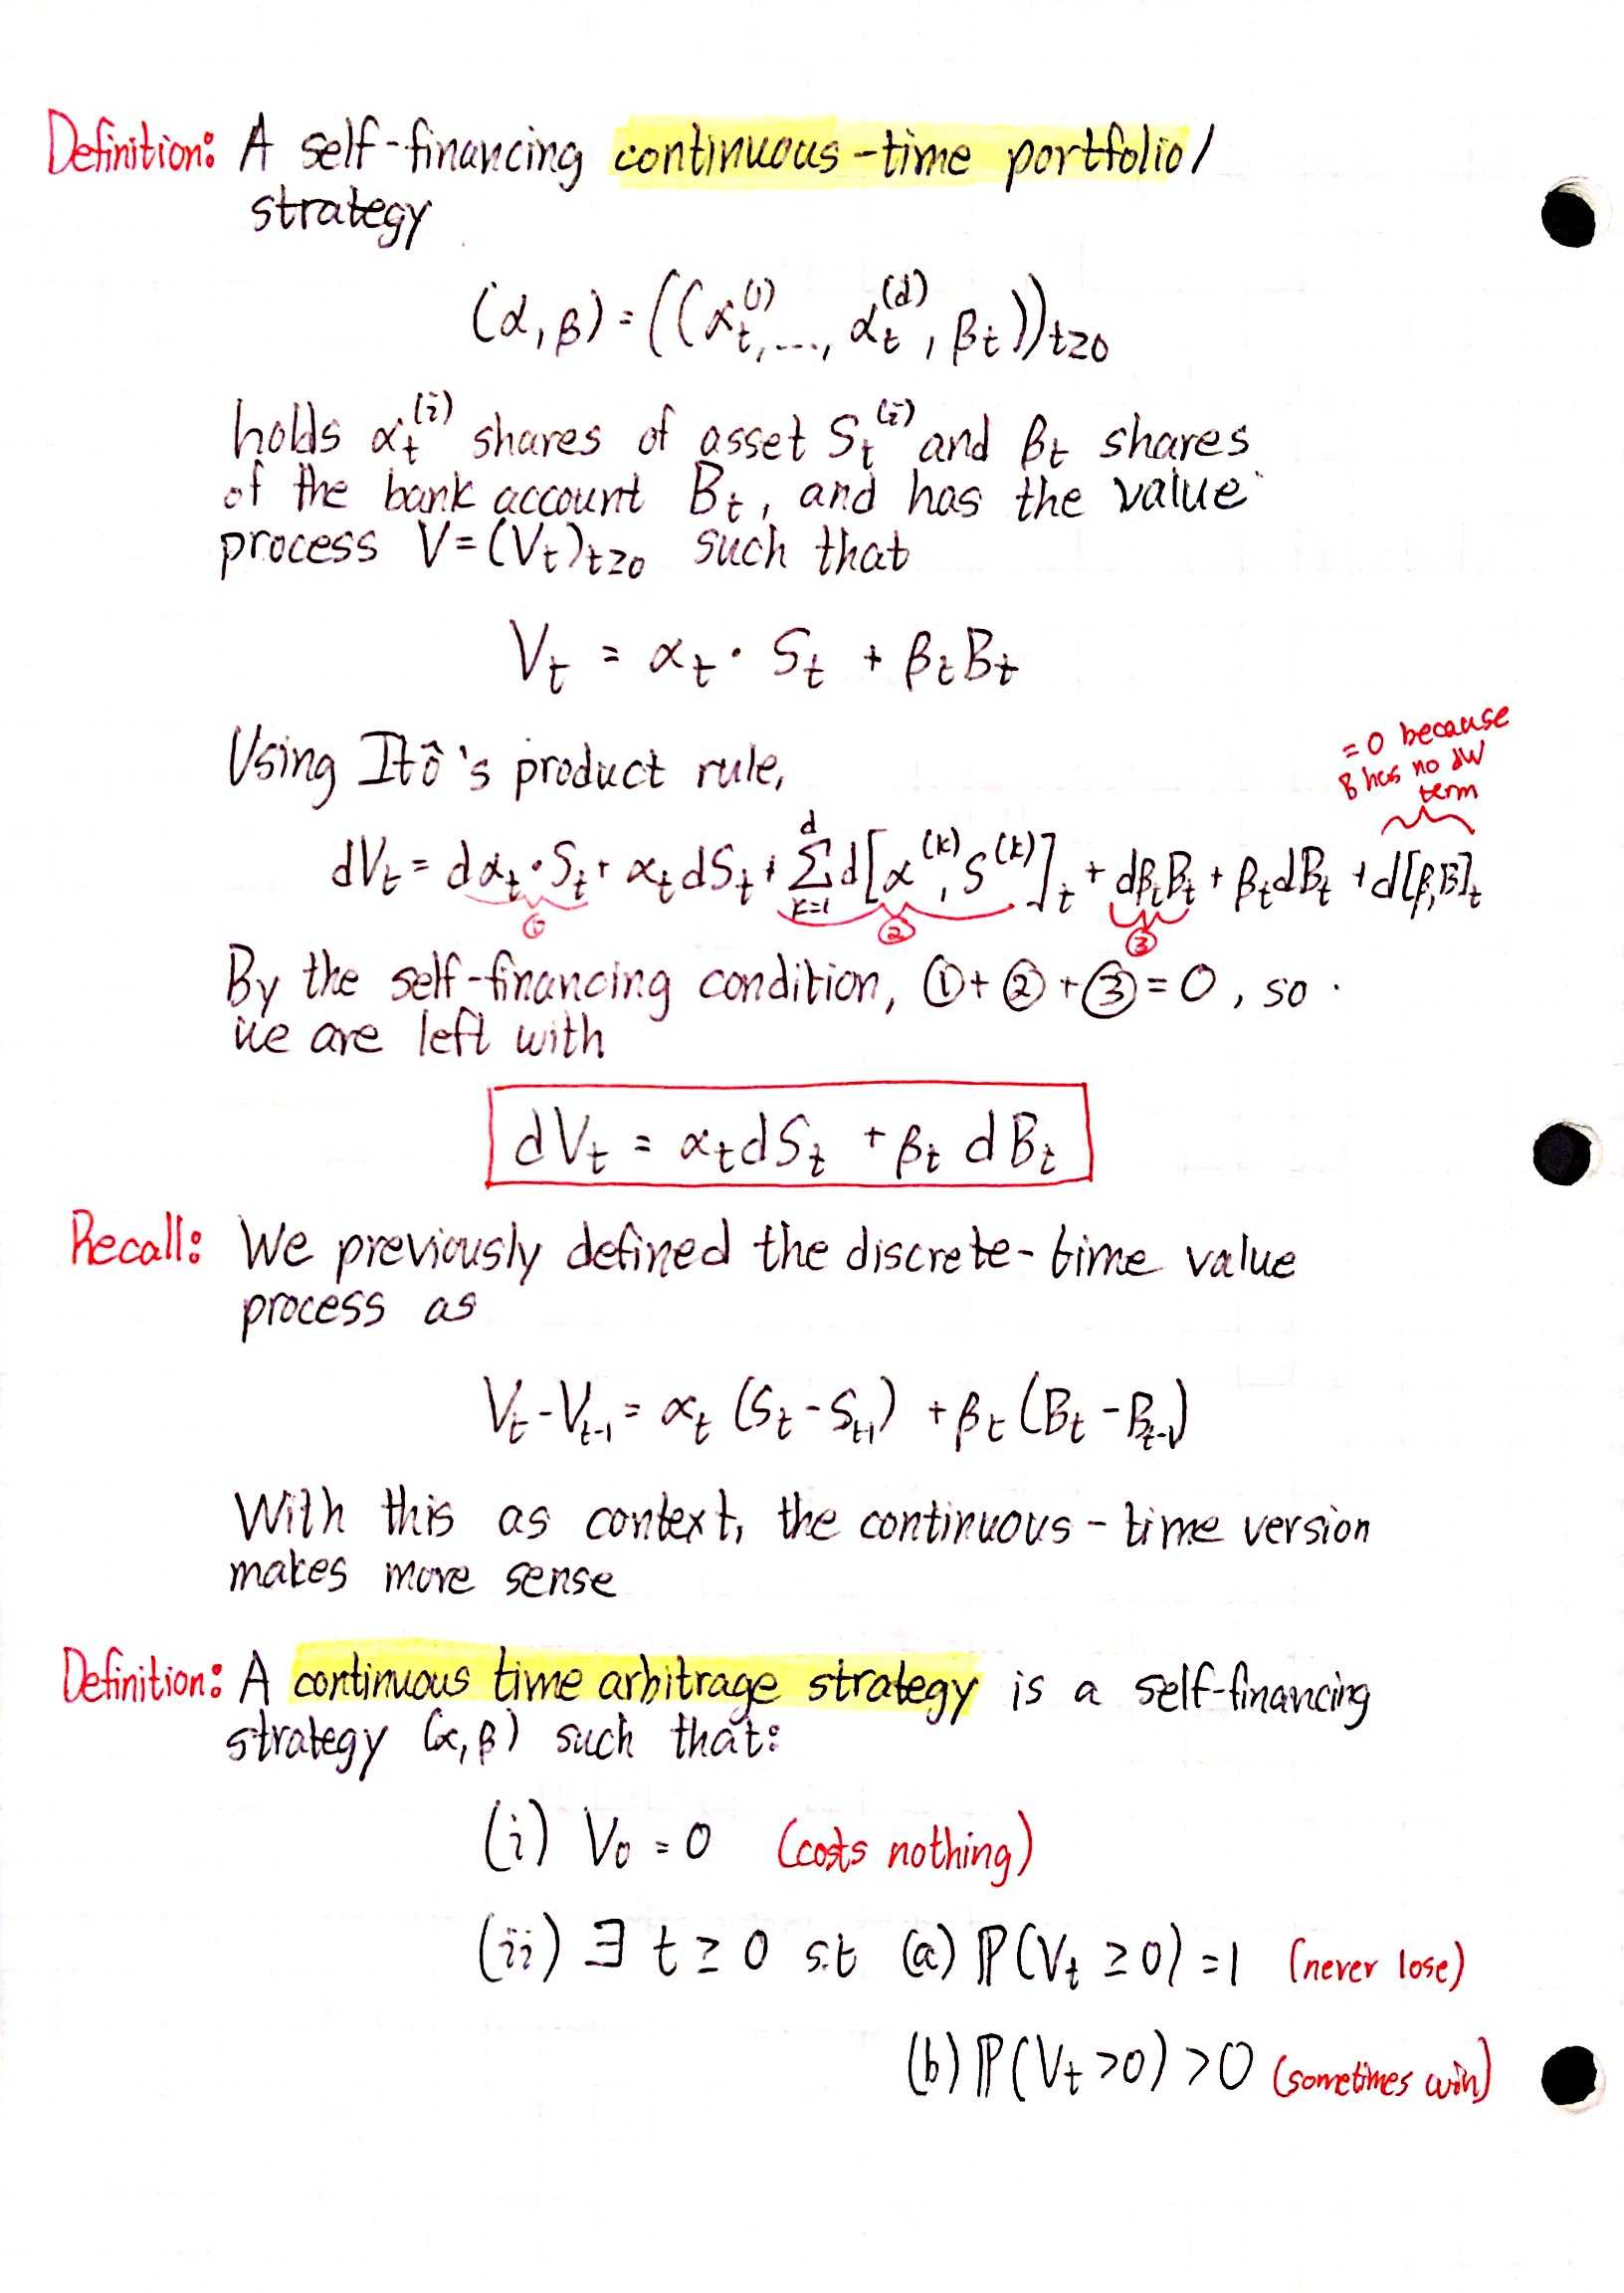 Definition: A self-financing continuous-time portfolio/
strategy
(α, β) = ((α_t^(1), ..., α_t^(d), β_t))_t≥0
holds α_t^(i) shares of asset S_t^(i) and β_t shares
of the bank account B_t, and has the value
process V=(V_t)_t≥0 such that
V_t = α_t · S_t + β_t B_t
= 0 because
B has no dW
term
Using Itô's product rule,
dV_t = dα_t · S_t + α_t dS_t + Σ_{k=1}^d d[α^(k), S^(k)]_t + dβ_t B_t + β_t dB_t + d[β,B]_t
① ② ③
By the self-financing condition, ①+②+③=0, so
we are left with
dV_t = α_t dS_t + β_t dB_t
Recall: We previously defined the discrete-time value
process as
V_t - V_{t-1} = α_t (S_t - S_{t-1}) + β_t (B_t - B_{t-1})
With this as context, the continuous-time version
makes more sense
Definition: A continuous time arbitrage strategy is a self-financing
strategy (α, β) such that:
(i) V_0 = 0 (costs nothing)
(ii) ∃ t ≥ 0 s.t (a) ℙ(V_t ≥ 0) = 1 (never lose)
(b) ℙ(V_t > 0) > 0 (sometimes win)